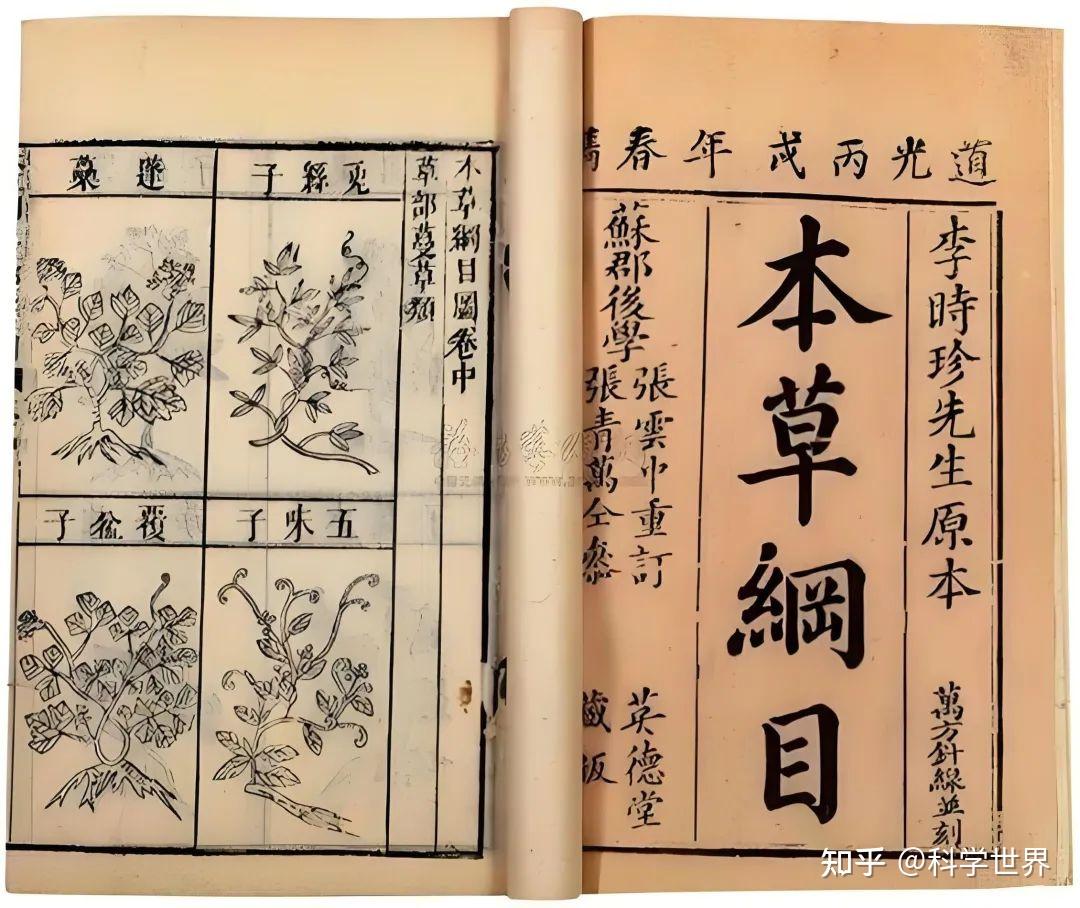 道光丙戌年春鐫
李時珍先生原本
萬方針線並刻
本草綱目
蘇郡後學
張雲中重訂
張青萬仝參
英德堂
藏板
本草綱目圖卷中
草部蔓草類
兎絲子
蓬蘽
五味子
覆盆子
知乎 @科学世界